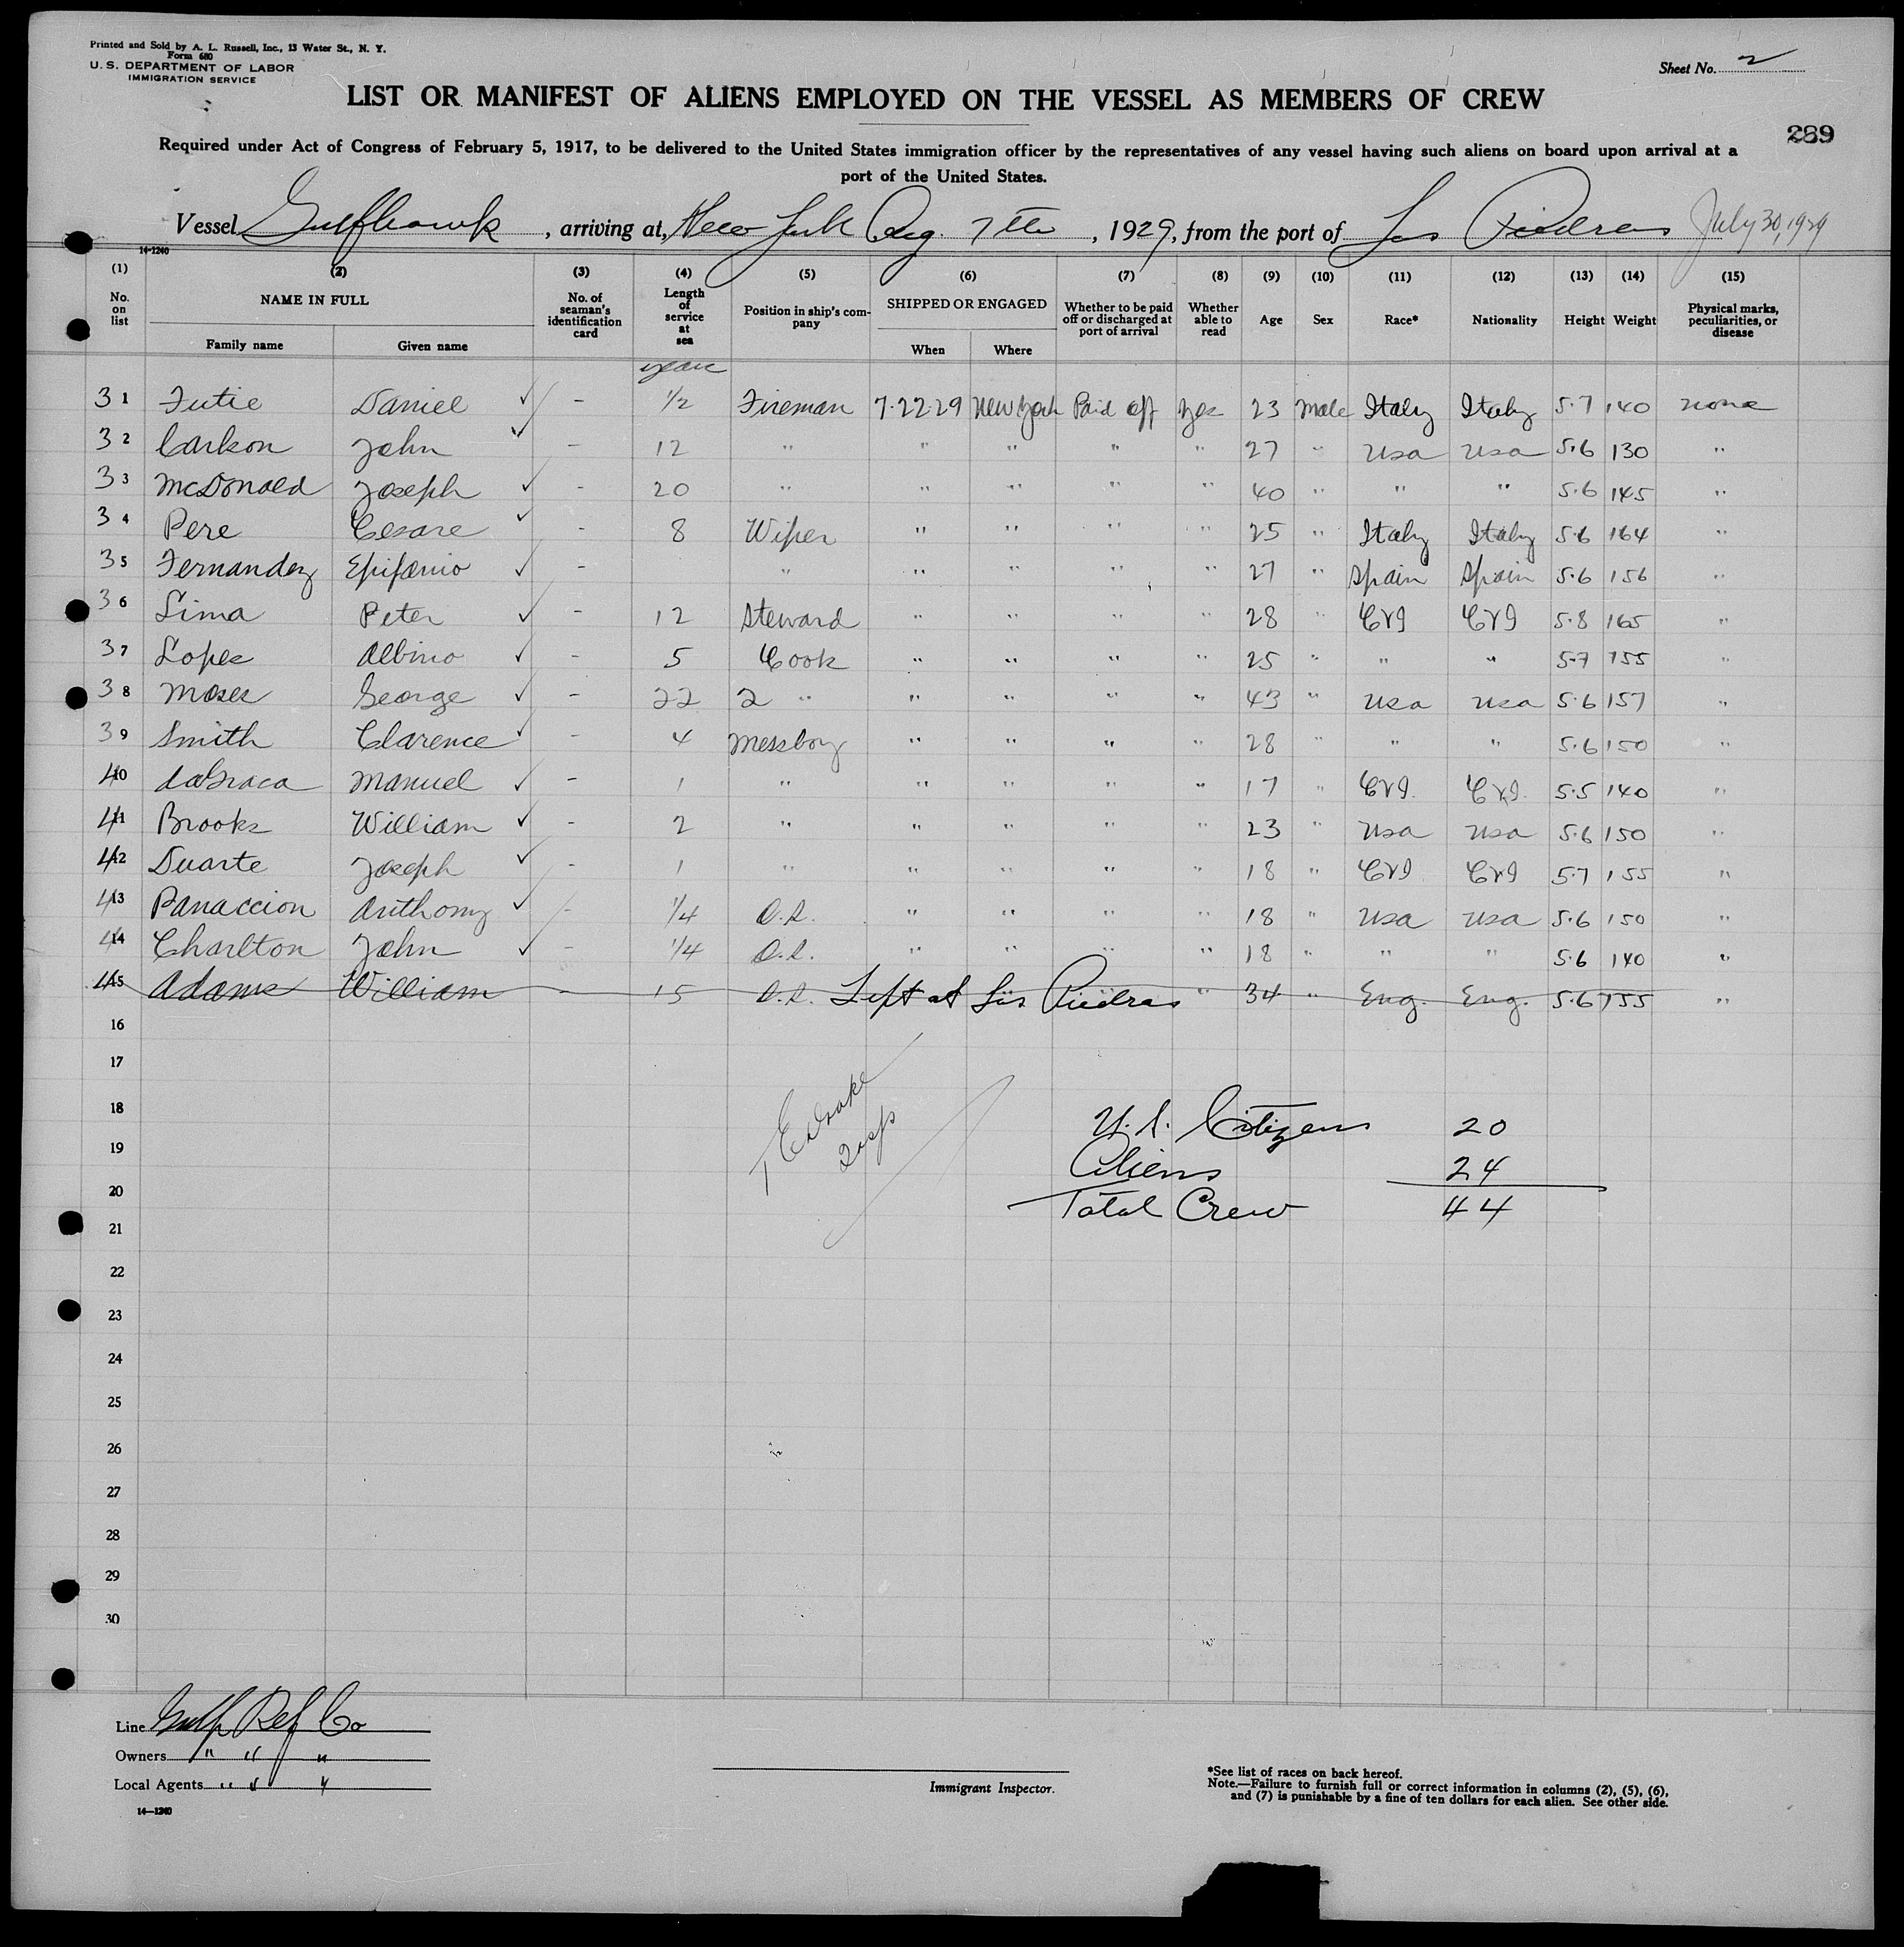 Printed and Sold by A. L. Russell, Inc., 13 Water St., N. Y.
Form 680
U. S. DEPARTMENT OF LABOR
IMMIGRATION SERVICE
Sheet No. 2
LIST OR MANIFEST OF ALIENS EMPLOYED ON THE VESSEL AS MEMBERS OF CREW
289
Required under Act of Congress of February 5, 1917, to be delivered to the United States immigration officer by the representatives of any vessel having such aliens on board upon arrival at a
port of the United States.
Vessel Gulfhawk, arriving at, New York Aug. 7th, 1929, from the port of Las Piedras July 30, 1929
14-1240
(1) (2) (3) (4) (5) (6) (7) (8) (9) (10) (11) (12) (13) (14) (15)
No. on list NAME IN FULL Family name Given name No. of seaman's identification card Length of service at sea Position in ship's company SHIPPED OR ENGAGED When Where Whether to be paid off or discharged at port of arrival Whether able to read Age Sex Race* Nationality Height Weight Physical marks, peculiarities, or disease
years
31 Futie Daniel ✓ - 1/2 Fireman 7-22-29 New York Paid off yes 23 Male Italy Italy 5-7 140 none
32 Carlson John ✓ - 12 " " " " " 27 " Usa Usa 5-6 130 "
33 McDonald Joseph ✓ - 20 " " " " " 40 " " " 5-6 145 "
34 Pere Cesare ✓ - 8 Wiper " " " " 25 " Italy Italy 5-6 164 "
35 Fernandez Epifanio ✓ - " " " " " 27 " Spain Spain 5-6 156 "
36 Lima Peter ✓ - 12 Steward " " " " 28 " CVI CVI 5-8 165 "
37 Lopes Albino ✓ - 5 Cook " " " " 25 " " " 5-7 155 "
38 Moses George ✓ - 22 2 " " " " " 43 " Usa Usa 5-6 157 "
39 Smith Clarence ✓ - 4 Messboy " " " " 28 " " " 5-6 150 "
40 daGraca Manuel ✓ - 1 " " " " " 17 " CVI. CVI. 5-5 140 "
41 Brooks William ✓ - 2 " " " " " 23 " Usa Usa 5-6 150 "
42 Duarte Joseph ✓ - 1 " " " " " 18 " CVI CVI 5-7 155 "
43 Panaccion Anthony ✓ - 1/4 O.S. " " " " 18 " Usa Usa 5-6 150 "
44 Charlton John ✓ - 1/4 O.S. " " " " 18 " " " 5-6 140 "
45 Adams William - 15 O.S. Left at Las Piedras " 34 " Eng. Eng. 5-6 155 "
16
17
18 U.S. Citizens 20
19 Aliens 24
20 Total Crew 44
21
22
23
24
25
26
27
28
29
30
Line Gulf Ref Co
Owners " " "
Local Agents " " "
14-1240
Immigrant Inspector.
*See list of races on back hereof.
Note.—Failure to furnish full or correct information in columns (2), (5), (6),
and (7) is punishable by a fine of ten dollars for each alien. See other side.